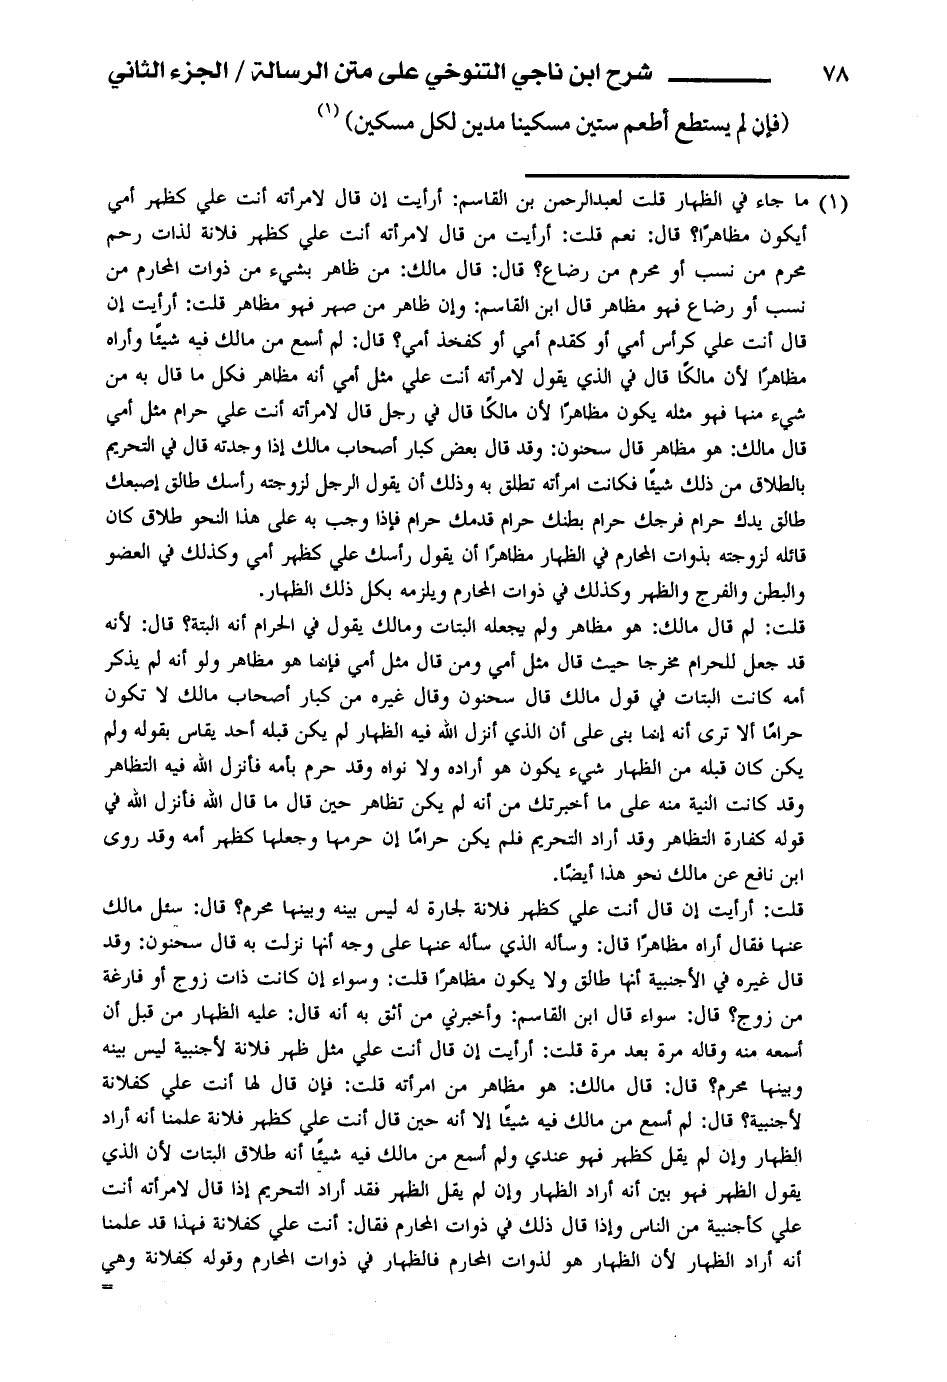 ٧٨ ــــــــــ شرح ابن ناجي التنوخي على متن الرسالة / الجزء الثاني
(فإن لم يستطع أطعم ستين مسكينا مدين لكل مسكين) (١)
(١) ما جاء في الظهار قلت لعبدالرحمن بن القاسم: أرأيت إن قال لامرأته أنت علي كظهر أمي
أيكون مظاهرًا؟ قال: نعم قلت: أرأيت من قال لامرأته أنت علي كظهر فلانة لذات رحم
محرم من نسب أو محرم من رضاع؟ قال: قال مالك: من ظاهر بشيء من ذوات المحارم من
نسب أو رضاع فهو مظاهر قال ابن القاسم: وإن ظاهر من صهر فهو مظاهر قلت: أرأيت إن
قال أنت علي كرأس أمي أو كقدم أمي أو كفخذ أمي؟ قال: لم أسمع من مالك فيه شيئًا وأراه
مظاهرًا لأن مالكًا قال في الذي يقول لامرأته أنت علي مثل أمي أنه مظاهر فكل ما قال به من
شيء منها فهو مثله يكون مظاهرًا لأن مالكًا قال في رجل قال لامرأته أنت علي حرام مثل أمي
قال مالك: هو مظاهر قال سحنون: وقد قال بعض كبار أصحاب مالك إذا وجدته قال في التحريم
بالطلاق من ذلك شيئًا فكانت امرأته تطلق به وذلك أن يقول الرجل لزوجته رأسك طالق إصبعك
طالق يدك حرام فرجك حرام بطنك حرام قدمك حرام فإذا وجب به على هذا النحو طلاق كان
قائله لزوجته بذوات المحارم في الظهار مظاهرًا أن يقول رأسك علي كظهر أمي وكذلك في العضو
والبطن والفرج والظهر وكذلك في ذوات المحارم ويلزمه بكل ذلك الظهار.
قلت: لم قال مالك: هو مظاهر ولم يجعله البتات ومالك يقول في الحرام أنه البتة؟ قال: لأنه
قد جعل للحرام مخرجا حيث قال مثل أمي ومن قال مثل أمي فإنما هو مظاهر ولو أنه لم يذكر
أمه كانت البتات في قول مالك قال سحنون وقال غيره من كبار أصحاب مالك لا تكون
حرامًا ألا ترى أنه إنما بنى على أن الذي أنزل الله فيه الظهار لم يكن قبله أحد يقاس بقوله ولم
يكن كان قبله من الظهار شيء يكون هو أراده ولا نواه وقد حرم بأمه فأنزل الله فيه التظاهر
وقد كانت النية منه على ما أخبرتك من أنه لم يكن تظاهر حين قال ما قال الله فأنزل الله في
قوله كفارة التظاهر وقد أراد التحريم فلم يكن حرامًا إن حرمها وجعلها كظهر أمه وقد روى
ابن نافع عن مالك نحو هذا أيضًا.
قلت: أرأيت إن قال أنت علي كظهر فلانة لجارة له ليس بينه وبينها محرم؟ قال: سئل مالك
عنها فقال أراه مظاهرًا قال: وسأله الذي سأله عنها على وجه أنها نزلت به قال سحنون: وقد
قال غيره في الأجنبية أنها طالق ولا يكون مظاهرًا قلت: وسواء إن كانت ذات زوج أو فارغة
من زوج؟ قال: سواء قال ابن القاسم: وأخبرني من أثق به أنه قال: عليه الظهار من قبل أن
أسمعه منه وقاله مرة بعد مرة قلت: أرأيت إن قال أنت علي مثل ظهر فلانة لأجنبية ليس بينه
وبينها محرم؟ قال: قال مالك: هو مظاهر من امرأته قلت: فإن قال لها أنت علي كفلانة
لأجنبية؟ قال: لم أسمع من مالك فيه شيئًا إلا أنه حين قال أنت علي كظهر فلانة علمنا أنه أراد
الظهار وإن لم يقل كظهر فهو عندي ولم أسمع من مالك فيه شيئًا أنه طلاق البتات لأن الذي
يقول الظهر فهو بين أنه أراد الظهار وإن لم يقل الظهر فقد أراد التحريم إذا قال لامرأته أنت
علي كأجنبية من الناس وإذا قال ذلك في ذوات المحارم فقال: أنت علي كفلانة فهذا قد علمنا
أنه أراد الظهار لأن الظهار هو لذوات المحارم فالظهار في ذوات المحارم وقوله كفلانة وهي
=